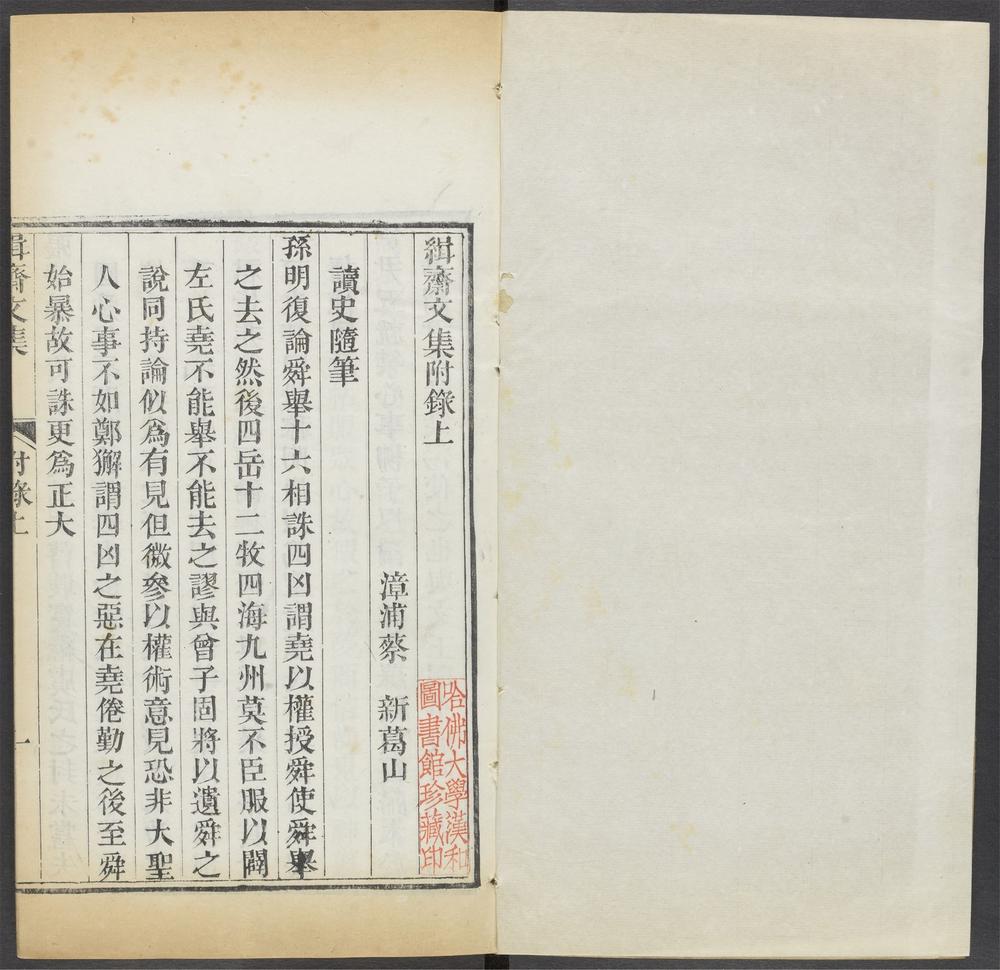 緝齋文集附錄上
漳浦蔡　新葛山
哈佛大學漢和
圖書館珍藏印
讀史隨筆
孫明復論舜舉十六相誅四凶謂堯以權授舜使舜舉
之去之然後四岳十二牧四海九州莫不臣服以闢
左氏堯不能舉不能去之謬與曾子固將以遺舜之
說同持論似爲有見但微參以權術意見恐非大聖
人心事不如鄭獬謂四凶之惡在堯倦勤之後至舜
始暴故可誅更爲正大
緝齋文集
附錄上
一